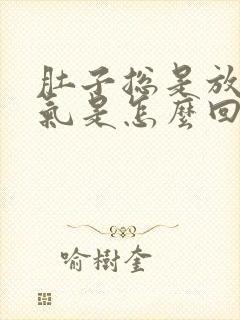 肚子總是放
氣是怎麼回
喻樹奎